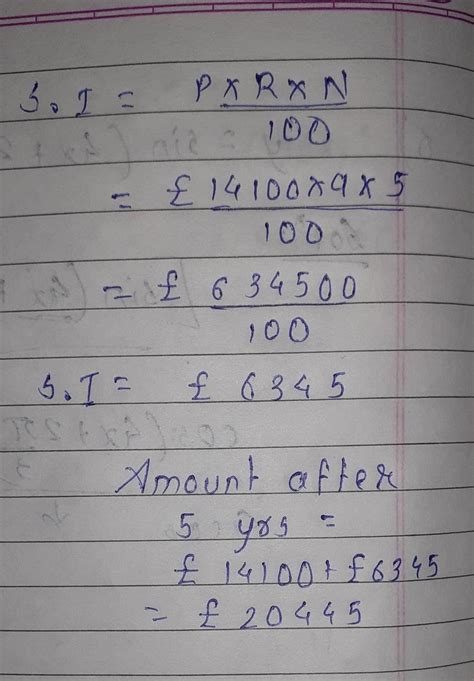 S.I = P x R x N
100
= £ 14100x9x5
100
= £ 634500
100
S.I = £ 6345
Amount after
5 yrs =
£ 14100+£6345
= £ 20445